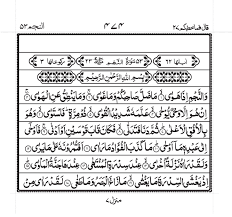 قال فما خطبکم ٢٧ ٤٧٤ النجم ٥٣
اٰیاتها ٦٢ ٥٣ سورة النجم ٢٣ رکوعاتها ٣
بِسْمِ اللّٰهِ الرَّحْمٰنِ الرَّحِيْمِ
وَالنَّجْمِ اِذَا هَوٰى ۙ مَا ضَلَّ صَاحِبُكُمْ وَمَا غَوٰى ۚ وَمَا يَنْطِقُ عَنِ الْهَوٰى ۙ
اِنْ هُوَ اِلَّا وَحْيٌ يُّوْحٰى ۙ عَلَّمَهٗ شَدِيْدُ الْقُوٰى ۙ ذُوْ مِرَّةٍ ؕ فَاسْتَوٰى ۙ وَهُوَ
بِالْاُفُقِ الْاَعْلٰى ؕ ثُمَّ دَنَا فَتَدَلّٰى ۙ فَكَانَ قَابَ قَوْسَيْنِ اَوْ اَدْنٰى ۚ فَاَوْحٰۤى
اِلٰى عَبْدِهٖ مَاۤ اَوْحٰى ؕ مَا كَذَبَ الْفُؤَادُ مَا رَاٰى اَفَتُمٰرُوْنَهٗ عَلٰى مَا يَرٰى
وَلَقَدْ رَاٰهُ نَزْلَةً اُخْرٰى ۙ عِنْدَ سِدْرَةِ الْمُنْتَهٰى عِنْدَهَا جَنَّةُ الْمَاْوٰى ؕ
اِذْ يَغْشَى السِّدْرَةَ مَا يَغْشٰى ۙ مَا زَاغَ الْبَصَرُ وَمَا طَغٰى لَقَدْ رَاٰى مِنْ
منزل ٧